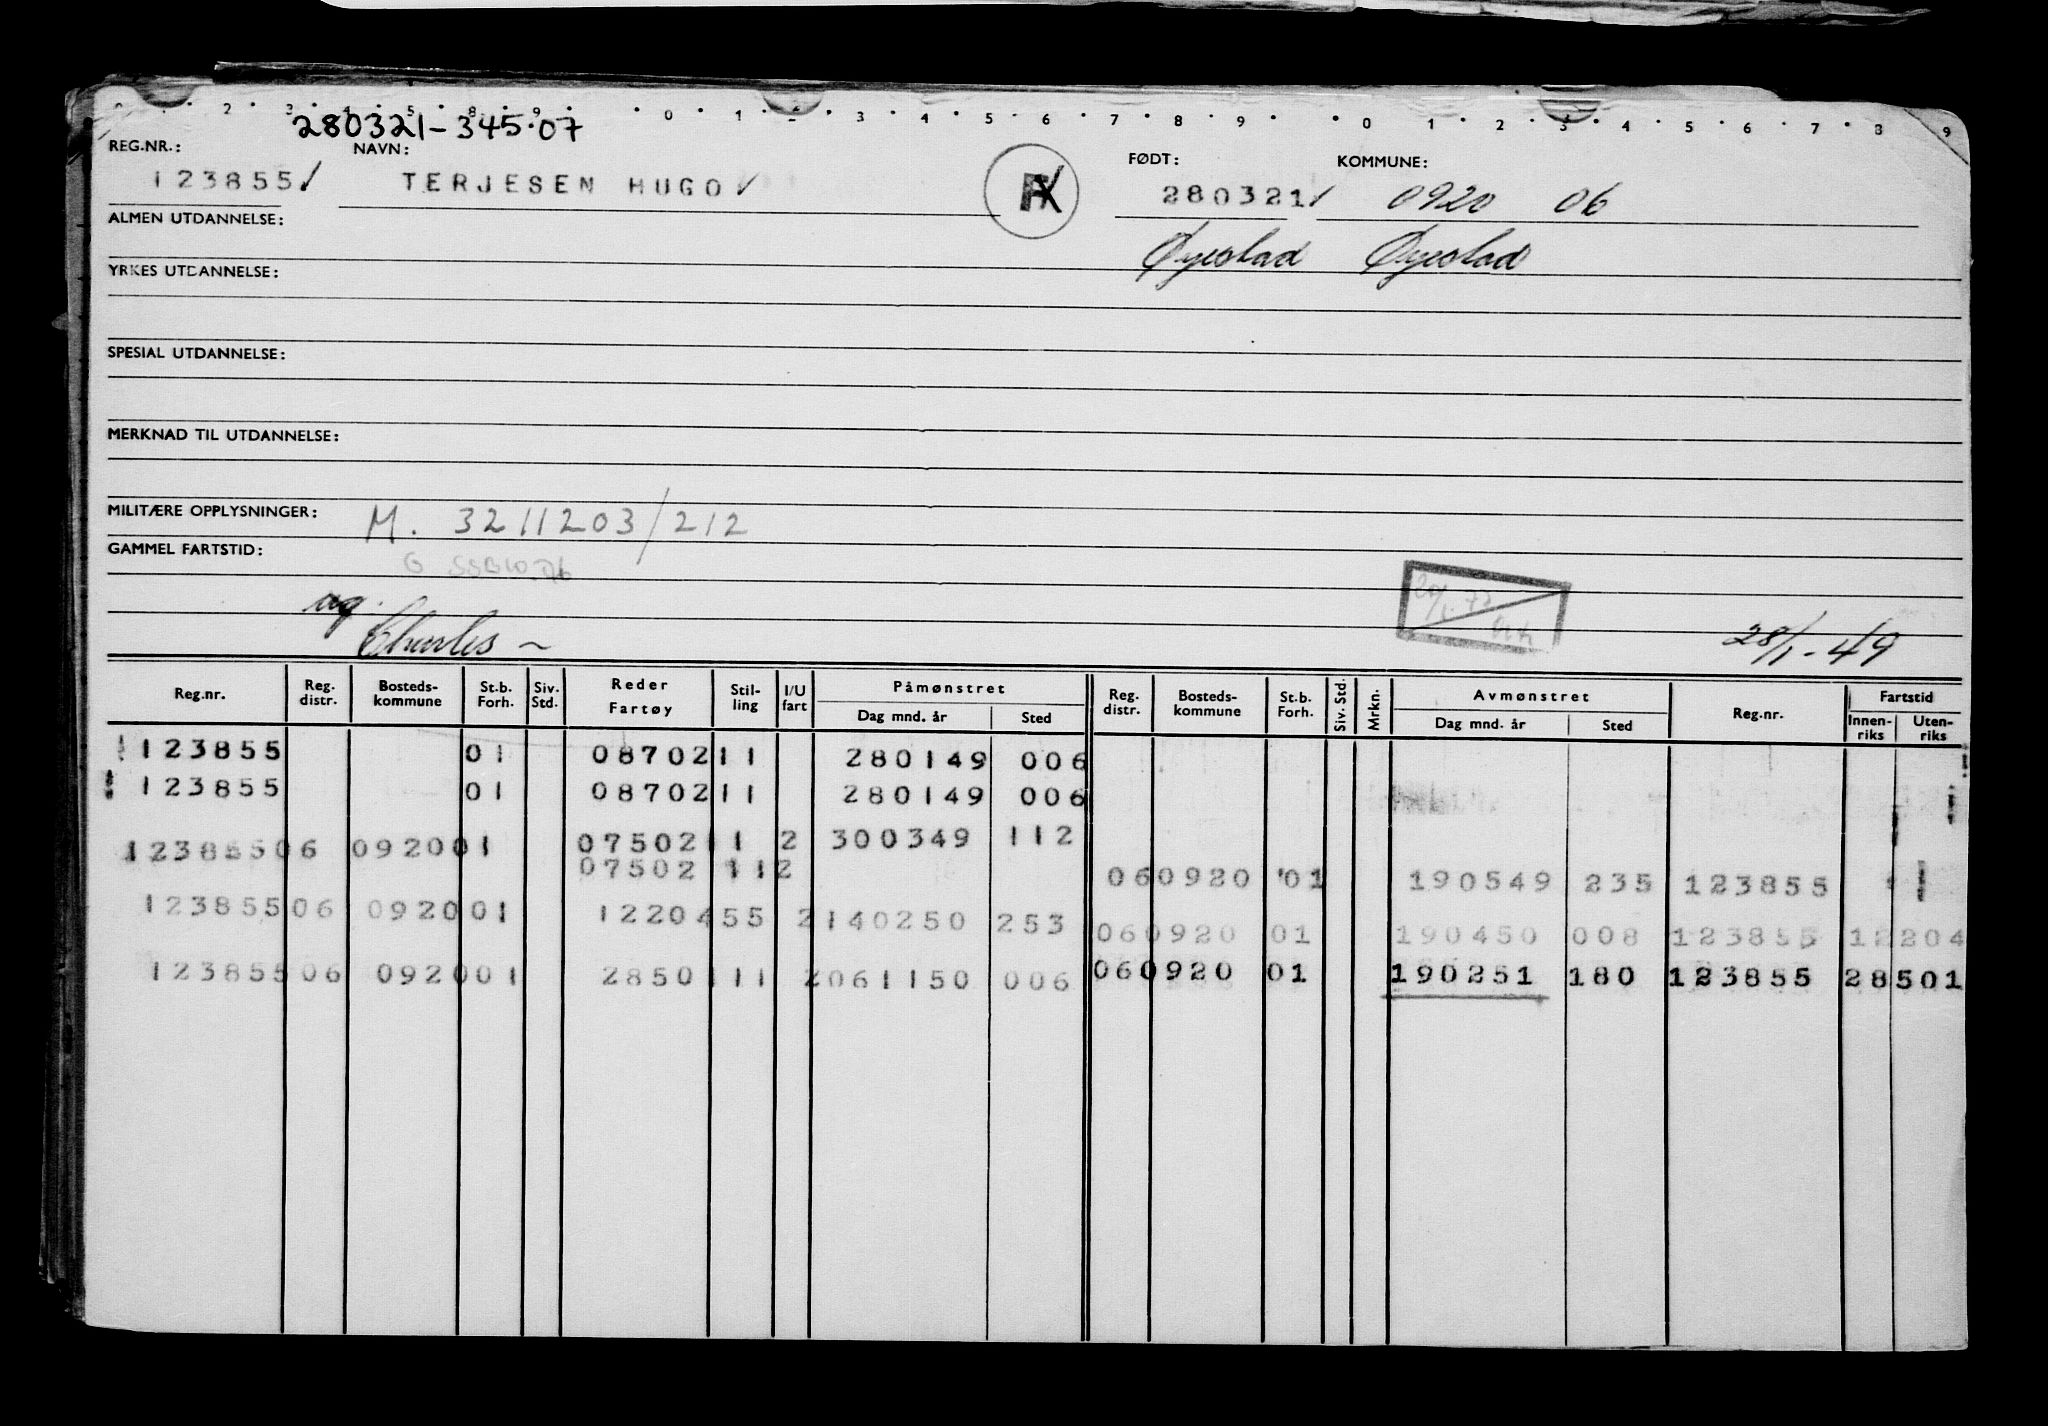 280321-345.07
REG.NR.: NAVN: FØDT: KOMMUNE:
123855 TERJESEN HUGO 280321 0920 06
ALMEN UTDANNELSE:
Øyestad Øyestad
YRKES UTDANNELSE:
SPESIAL UTDANNELSE:
MERKNAD TIL UTDANNELSE:
MILITÆRE OPPLYSNINGER: M. 3211203/212
GAMMEL FARTSTID:
Charles ~ 28/1-49
Reg.nr. Reg. distr. Bosteds-kommune St.b. Forh. Siv. Std. Reder Fartøy Stil-ling I/U fart Påmønstret Dag mnd. år Sted Reg. distr. Bosteds-kommune St.b. Forh. Siv. Std. Mrkn. Avmønstret Dag mnd. år Sted Reg.nr. Fartstid Innen-riks Uten-riks
123855 01 08702 11 280149 006
123855 01 08702 11 280149 006
123855 06 0920 01 07502 11 2 300349 112
07502 11 2 06 0920 01 190549 235 123855
123855 06 0920 01 12204 55 2 140250 253 06 0920 01 190450 008 123855 12204
123855 06 0920 01 28501 11 2 061150 006 06 0920 01 190251 180 123855 28501